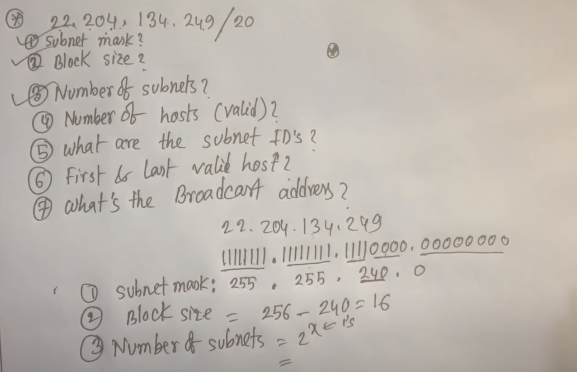 * 22.204.134.249/20
① Subnet mask?
② Block size?
③ Number of subnets?
④ Number of hosts (valid)?
⑤ What are the subnet ID's?
⑥ First & last valid host?
⑦ What's the Broadcast address?
22.204.134.249
11111111.11111111.11110000.00000000
① Subnet mask: 255 . 255 . 240 . 0
② Block size = 256 - 240 = 16
③ Number of subnets = 2^x ← 1's
=